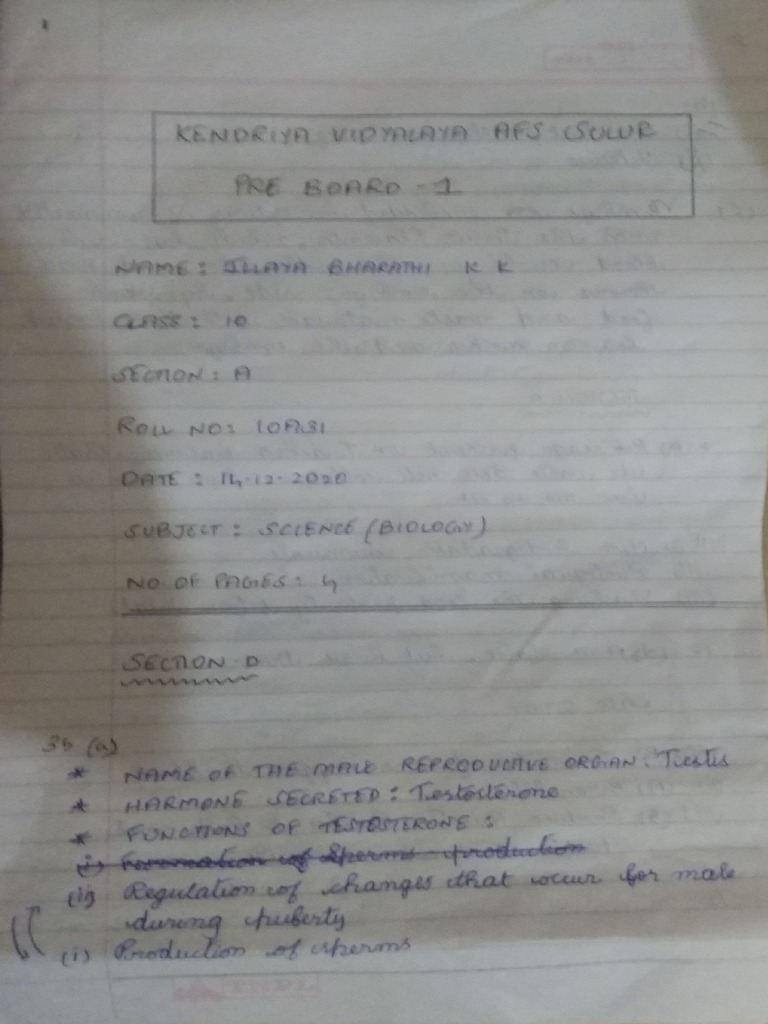 KENDRIYA VIDYALAYA AFS SULUR
PRE BOARD - 1
NAME: ILLAYA BHARATHI K K
CLASS: 10
SECTION: A
ROLL NO: 10A31
DATE: 14.12.2020
SUBJECT: SCIENCE (BIOLOGY)
NO OF PAGES: 4
SECTION-D
36 (a)
* NAME OF THE MALE REPRODUCTIVE ORGAN: Testis
* HARMONE SECRETED: Testosterone
* FUNCTIONS OF TESTOSTERONE:
(i) Formation of Sperms production
(ii) Regulation of changes that occur for male
during puberty
(i) Production of sperms